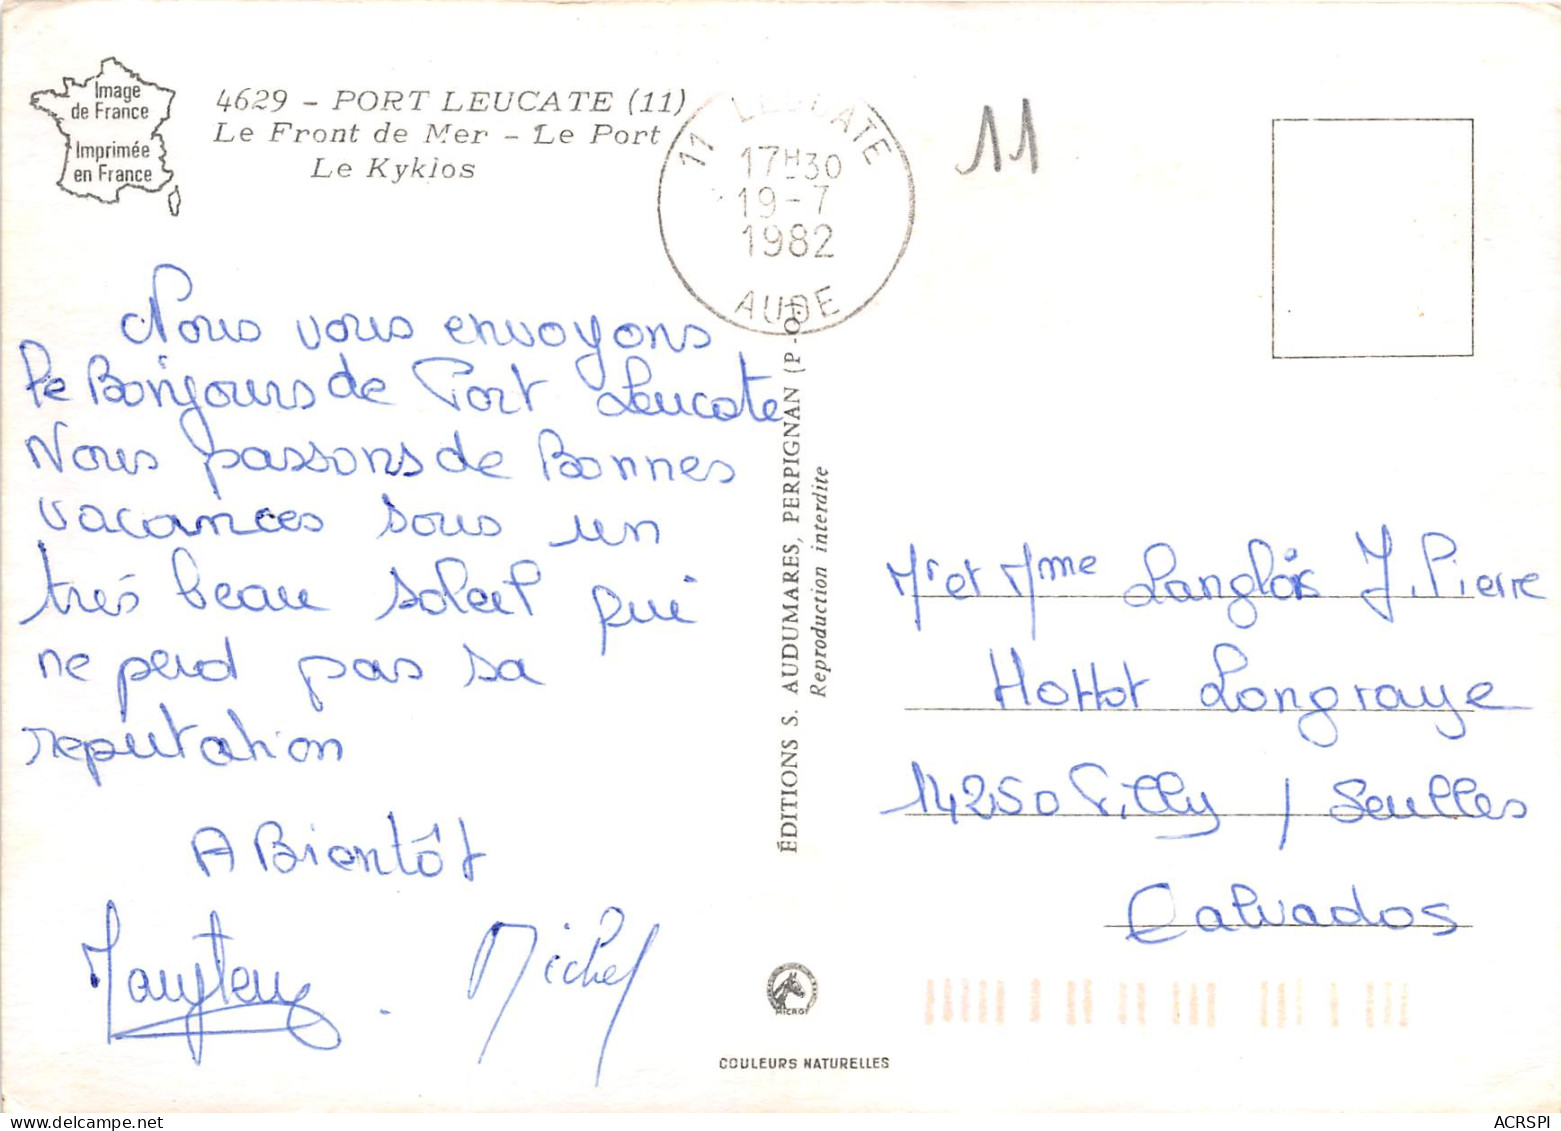 Image
de France
Imprimée
en France
4629 - PORT LEUCATE (11)
Le Front de Mer - Le Port
Le Kyklos
11 LEUCATE
17H30
19-7
1982
AUDE
11
Nous vous envoyons
le Bonjours de Port Leucate
Nous passons de Bonnes
vacances sous un
très beau soleil qui
ne perd pas sa
reputation
A Bientôt
Michel
ÉDITIONS S. AUDUMARES, PERPIGNAN (P.-O.)
Reproduction interdite
Mr et Mme Langlois J. Pierre
Hottot Longraye
14250 Tilly / Seulles
Calvados
COULEURS NATURELLES
ACRSPI